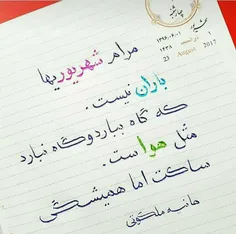 چهارشنبه
شهریور
۱
۱۳۹۶/۰۶/۰۱
۱۴۳۸
23 August 2017
مرام شهریوریها
باران نیست.
که گاه ببارد و گاه نبارد
مثل هوا ست.
ساکت اما همیشگی
هانیه ملکوتی